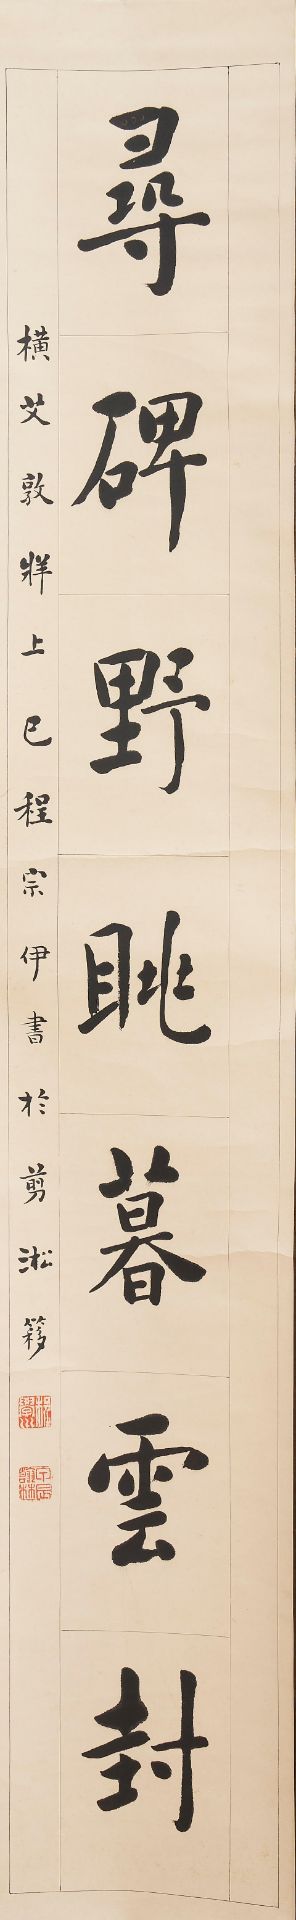 尋碑野眺暮雲封
橫艾敦牂上巳程宗伊書於剪淞簃